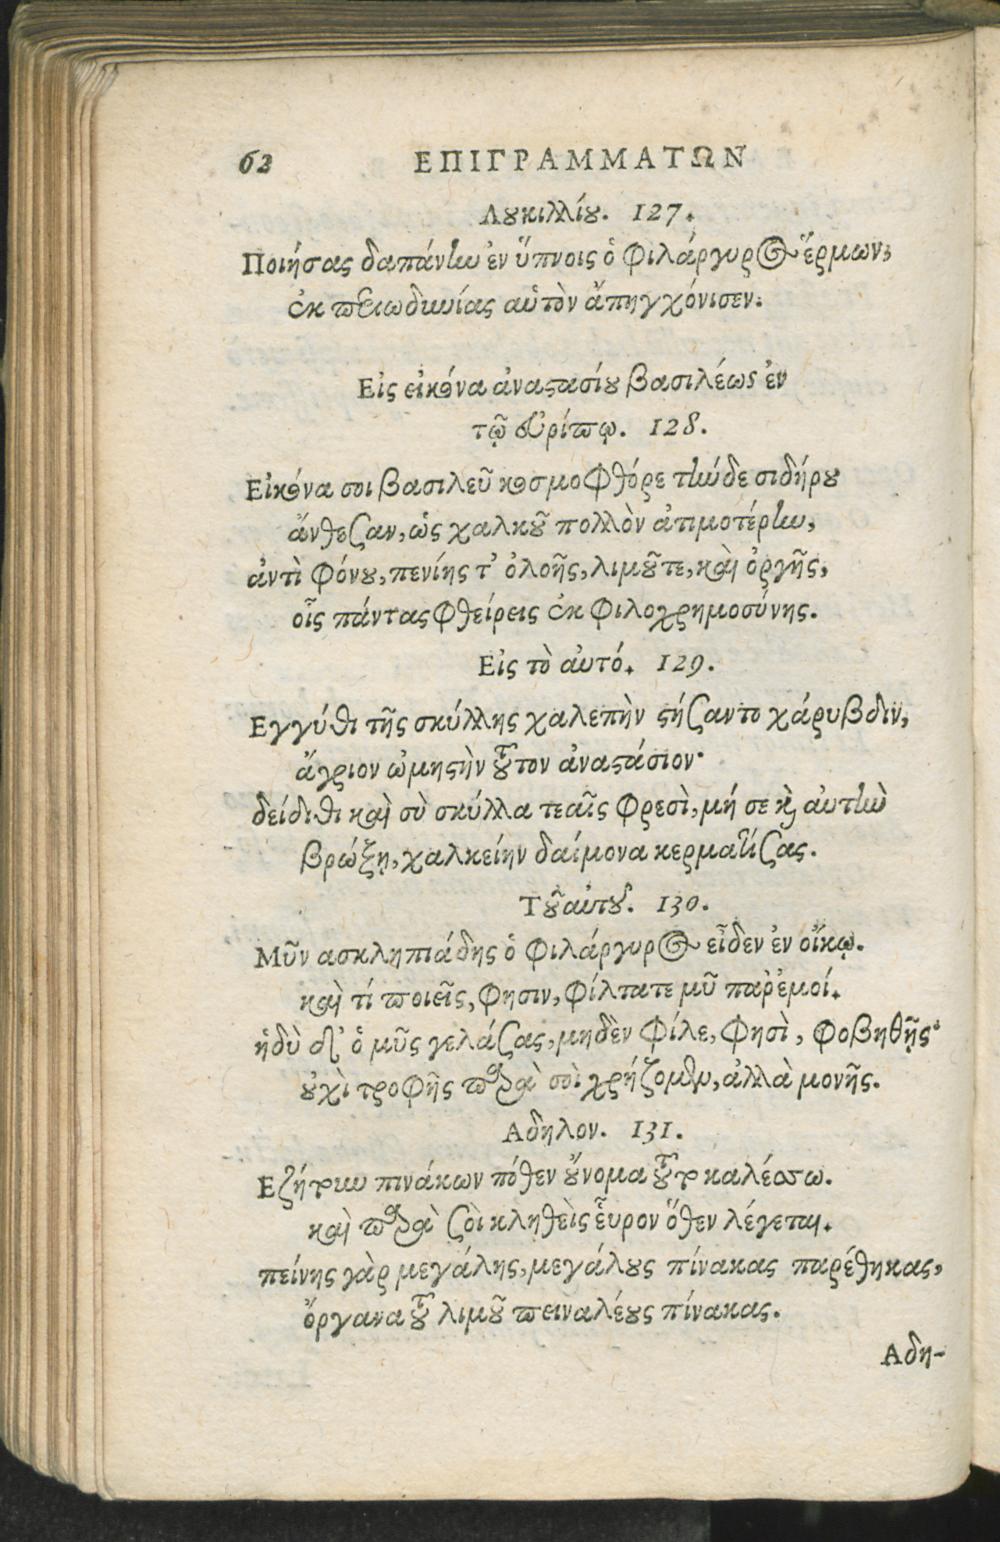 62 ΕΠΙΓΡΑΜΜΑΤΩΝ
Λουκιλλίου. 127.
Ποιήσας δαπάνην ἐν ὕπνοις ὁ φιλάργυρος ἕρμων,
ἐκ περιωδυνίας αὑτὸν ἄπηγχόνισεν.
Εἰς εἰκόνα ἀναστασίου βασιλέως ἐν
τῷ εὐρίπῳ. 128.
Εἰκόνα σοι βασιλεῦ κοσμοφθόρε τήνδε σιδήρου
ἄνθεσαν, ὡς χαλκοῦ πολλὸν ἀτιμοτέρην,
ἀντὶ φόνου, πενίης τ' ὀλοῆς, λιμοῦ τε, καὶ ὀργῆς,
οἷς πάντας φθείρεις ἐκ φιλοχρημοσύνης.
Εἰς τὸ αὐτό. 129.
Εγγύθι τῆς σκύλλης χαλεπὴν στήσαντο χάρυβδιν,
ἄγριον ὠμηστὴν τοῦτον ἀναστάσιον·
δείδιθι καὶ σὺ σκύλλα τεαῖς φρεσὶ, μή σε καὶ αὐτὴν
βρώξῃ, χαλκείην δαίμονα κερματίσας.
Τοῦ αὐτοῦ. 130.
Μῦν ασκληπιάδης ὁ φιλάργυρος εἶδεν ἐν οἴκῳ.
καὶ τί ποιεῖς, φησιν, φίλτατε μῦ παρ' ἐμοί.
ἡδὺ δ' ὁ μῦς γελάσας, μηδὲν φίλε, φησὶ, φοβηθῇς·
οὐχὶ τροφῆς παρὰ σοὶ χρήζομεν, ἀλλὰ μονῆς.
Αδηλον. 131.
Εζήτουν πινάκων πόθεν οὔνομα τοῦτο καλέσσω.
καὶ παρὰ σοὶ κληθεὶς εὗρον ὅθεν λέγεται.
πείνης γὰρ μεγάλης, μεγάλους πίνακας παρέθηκας,
ὄργανα τοῦ λιμοῦ πειναλέους πίνακας.
Αδη-